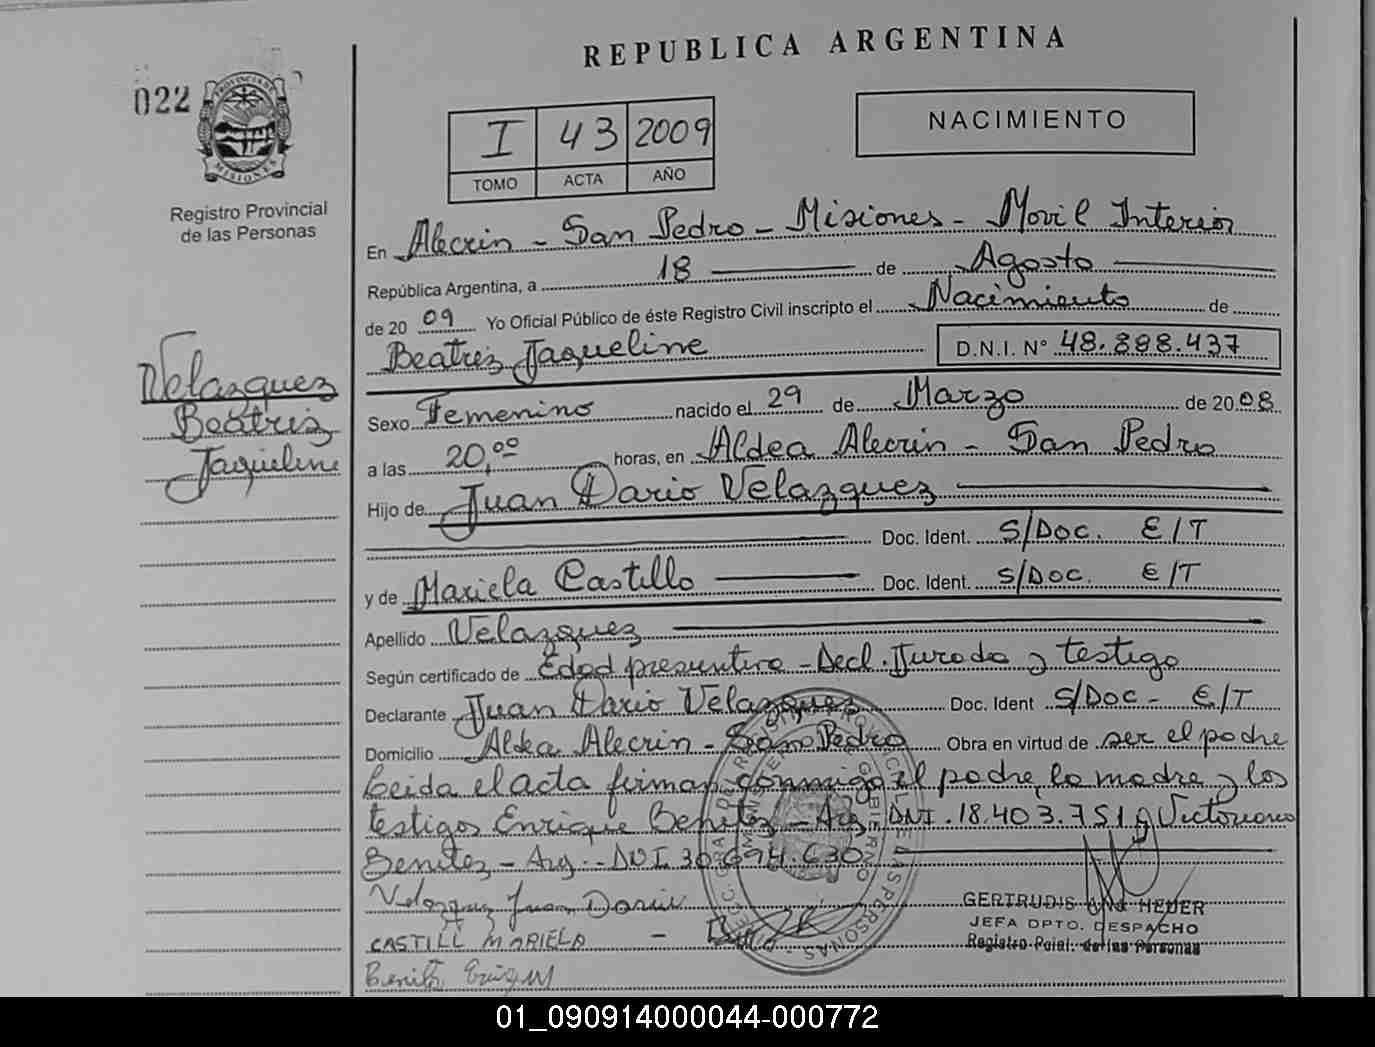 REPUBLICA ARGENTINA
022
PROVINCIA DE MISIONES
Registro Provincial
de las Personas
I 43 2009
TOMO ACTA AÑO
NACIMIENTO
En Alecrin - San Pedro - Misiones - Movil Interior
República Argentina, a 18 de Agosto
de 2009 Yo Oficial Público de éste Registro Civil inscripto el Nacimiento de
Beatriz Jaqueline D.N.I. N° 48.888.437
Velazquez
Beatriz
Jaqueline
Sexo Femenino nacido el 29 de Marzo de 2008
a las 20,00 horas, en Aldea Alecrin - San Pedro
Hijo de Juan Dario Velazquez
Doc. Ident. S/Doc. E/T
y de Mariela Castillo Doc. Ident. S/Doc. E/T
Apellido Velazquez
Según certificado de Edad presuntiva - Decl. Jurada y testigo
Declarante Juan Dario Velazquez Doc. Ident S/Doc - E/T
Domicilio Aldea Alecrin - San Pedro Obra en virtud de ser el padre
Leida el acta firman conmigo el padre, la madre y los
testigos Enrique Benitez - Arg. DNI. 18.403.751 y Victoriano
Benitez - Arg. - DNI. 30.694.630
Velazquez Juan Dario
CASTILL MARIELA -
Benit
GERTRUDIS ANA HEUER
JEFA DPTO. DESPACHO
Registro Pcial. de las Personas
01_090914000044-000772